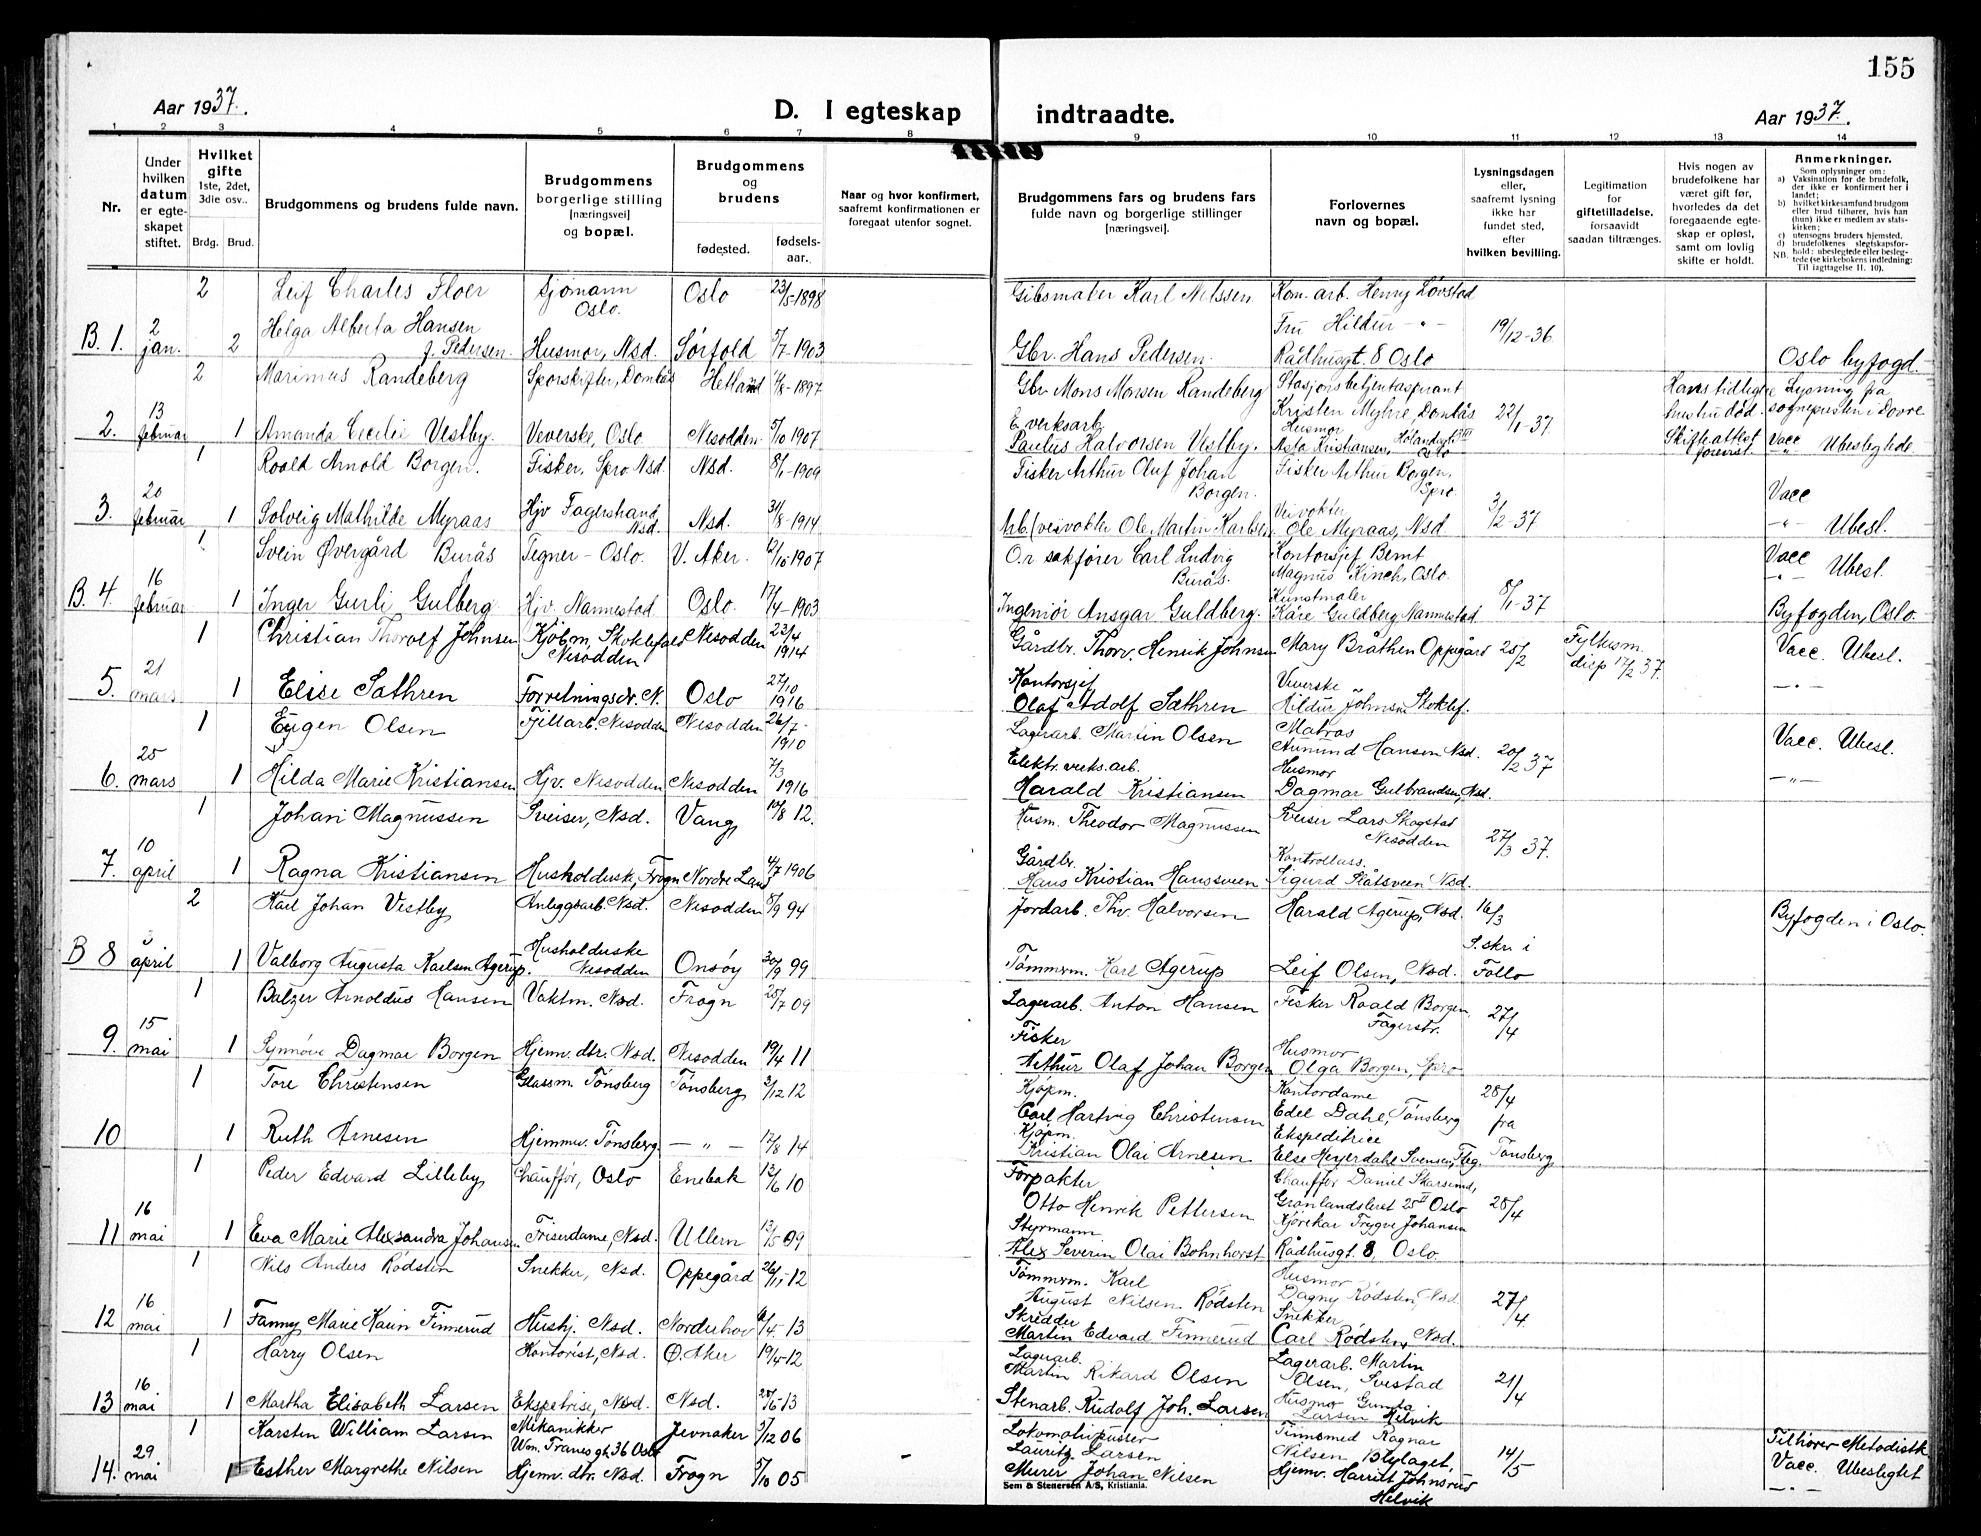 155
Aar 1937.
D. I egteskap indtraadte.
Aar 1937.
1 2 3 4 5 6 7 8 9 10 11 12 13 14
Nr.
Under hvilken datum er egteskapet stiftet.
Hvilket gifte 1ste, 2det, 3die osv..
Brdg. Brud.
Brudgommens og brudens fulde navn.
Brudgommens borgerlige stilling [næringsvei] og bopæl.
Brudgommens og brudens
fødested.
fødsels-aar.
Naar og hvor konfirmert, saafremt konfirmationen er foregaat utenfor sognet.
Brudgommens fars og brudens fars fulde navn og borgerlige stillinger [næringsvei].
Forlovernes navn og bopæl.
Lysningsdagen eller, saafremt lysning ikke har fundet sted, efter hvilken bevilling.
Legitimation for giftetilladelse, forsaavidt saadan tiltrænges.
Hvis nogen av brudefolkene har været gift før, hvorledes da det foregaaende egteskap er opløst, samt om lovlig skifte er holdt.
Anmerkninger.
Som oplysninger om:
a) Vaksination for de brudefolk, der ikke er konfirmert her i landet;
b) hvilket kirkesamfund brudgom eller brud tilhører, hvis han (hun) ikke er medlem av statskirken;
c) utensogns bruders hjemsted.
d) brudefolkenes slegtskapsforhold: ubeslegtede eller beslegtede (se kirkebokens indledning:
NB. Til iagttagelse II. 10).
2 Leif Charles Floer Sjømann Oslo. Oslo 23/5-1898 Gibsmaker Karl Nilssen Kom. arb. Henry Løvstad
B. 1. 2 jan. 2 Helga Alberta Hansen f. Pedersen. Husmor, Nsd. Sørfold 5/7-1903 Gbr. Hans Pedersen. Fru Hildur -"- Rådhusgt. 8 Oslo 19/12-36 Oslo byfogd.
2 Marinus Randeberg Sporskifter, Dombås Hetland 11/8-1897 Gbr Mons Monsen Randeberg Stasjonsbetjentaspirant Kristen Myhre, Dombås Hans tidligere hustru død. Skifteattest forevist. Lysning fra sognepresten i Dovre
2. 13 februar 1 Amanda Cecilie Vestby. Veverske, Oslo Nesodden. 5/10 1907 E. verksarb. Paulus Halvorsen Vestby. Husmor Asta Kristiansen, Oslo 22/1-37 Vacc -"- Ubeslegtede
1 Roald Arnold Borgen. Fisker, Spro Nsd. Nsd. 8/1-1909 Fisker Arthur Oluf Johan Borgen. Fisker Arthur Borgen, Spro. Vacc
3. 20 februar 1 Solveig Mathilde Myraas Hjv Fagerstrand Nsd. Nsd. 31/8-1914 veivokter Ole Martin Karlsen Veivokter Ole Myraas, Nsd. 3/2-37 -"- Ubesl.
1 Svein Øvergård Burås Tegner - Oslo. V. Aker. 12/10-1907 O.r. sakfører Carl Ludvig Burås. Kontorsjef Bernt Magnus Kinch, Oslo. Vacc -"- Ubesl.
B. 4. 16 februar 1 Inger Gurli Gulberg Hjv. Nannestad Oslo. 17/4-1903 Ingeniør Ansgar Guldberg. Kunstmaler Kåre Guldberg Nannestad 8/1-37 Byfogden, Oslo.
1 Christian Thoralf Johnsen Kjøbm. Skoklefald Nesodden Nesodden 23/4 1914 Gårdbr. Thorv. Henrik Johnsen Mary Bråthen Oppegård 25/2 Fylkesm. disp 17/2 37. Vacc. Ubesl.
5. 21 mars 1 Elise Sathren Forretningsdr. N. Oslo 27/10 1916 Kontorsjef Olaf Adolf Sathren Veverske Hildur Johnsen Skoklef. -"-
1 Eugen Olsen Fjellarb. Nesodden Nesodden 26/7-1910 Lagerarb. Martin Olsen Matros Aumund Hansen Nsd. Vacc. Ubesl.
6. 25 mars 1 Hilda Marie Kristiansen Hjv. Nesodden Nesodden 7/3 1916 Elektr. verks. arb. Harald Kristiansen Husmor Dagmar Gulbrandsen, Nsd. 20/2 37 -"-
1 Johan Magnussen Sveiser, Nsd. Vang 10/8 12. Husm. Theodor Magnussen Sveiser Lars Skogstad Nesodden
7. 10 april 1 Ragna Kristiansen Husholdersk, Frogn Nordre Land 4/7 1906 Gårdbr. Hans Kristian Hansveen Kontrollass. Sigurd Slåtsveen Nsd. 27/3 37.
2 Karl Johan Vestby Anleggsarb. Nsd. Nesodden 8/9 94 Jordarb. Thv. Halvorsen Harald Agerup, Nsd. 16/3 Byfogden i Oslo.
B 8 3 april 1 Valborg Augusta Karlsen Agerup. Husholderske Nesodden Onsøy 30/9 99 Tømmerm. Karl Agerup Leif Olsen, Nsd. S. skr. i Follo
1 Balzer Arnoldus Hansen Vaktm. Nsd. Frogn 25/7 09 Lagerarb. Anton Hansen Fisker Roald Borgen, Fagerstr.
9. 15 mai 1 Synnøve Dagmar Borgen Hjemv. dtr. Nsd. Nesodden 19/4 11 Fisker Arthur Olaf Johan Borgen Husmor Olga Borgen, Spro 27/4
1 Tore Christensen Glassm. Tønsberg Tønsberg 2/12 12 Kjøpm. Carl Hartvig Christensen Kontordame Edel Dahl, Tønsberg 28/4
10 1 Ruth Arnesen Hjemmev. Tønsberg -"- 17/8 14 Kjøpm. Kristian Olai Arnesen Ekspeditrice Else Heyerdahl Svensen, Tbg. fra Tønsberg
1 Peder Edvard Lilleby Chauffør, Oslo Enebak 12/6 10 Forpakter Otto Henrik Pettersen Chauffør Daniel Grønlandsleret 25 II Oslo
11 16 mai 1 Eva Marie Alexsandra Johansen Friserdame, Nsd. Ullern 13/5 09 Styrmann Alex Severin Olai Bohnhorst Kjørekar Trygve Johansen Rådhusgt. 8, Oslo. 28/4
1 Nils Anders Rødsten Snekker, Nsd. Oppegård 26/11-12 Tømmerm. Karl August Nilsen Rødsten Husmor Dagny Rødsten, Nsd
12 16 mai 1 Fanny Marie Karin Finnerud Hushj. Nsd. Norderhov /4-13 Skredder Martin Edvard Finnerud Snekker Carl Rødsten, Nsd. 27/4
1 Harry Olsen Kontorist, Nsd. Ø. Aker 19/4-12 Lagerarb. Martin Rikard Olsen Lagerarb. Martin Olsen, Svestad
13 16 mai 1 Martha Elisabeth Larsen Ekspetrise, Nsd. Nsd. 20/5-13 Stenarb. Rudolf Joh. Larsen Husmor Gunda Larsen Helvik 21/4
1 Karsten William Larsen Mekanikker Wm. Tranes gt. 36 Oslo Jevnaker 5/12 06 Lokomotivpusser Lauritz Larsen Finnsmed Ragnar Nilsen Blylaget, Tilhører Metodistk
14. 29 mai 1 Esther Margrethe Nilsen Hjemv. dtr. Nsd. Frogn 5/10 05 Murer Johan Nilsen Hjemv. Harriet Johnsrud Helvik 14/5 Vacc. Ubeslegtet -"-
Sem & Stenersen A/S, Kristiania.